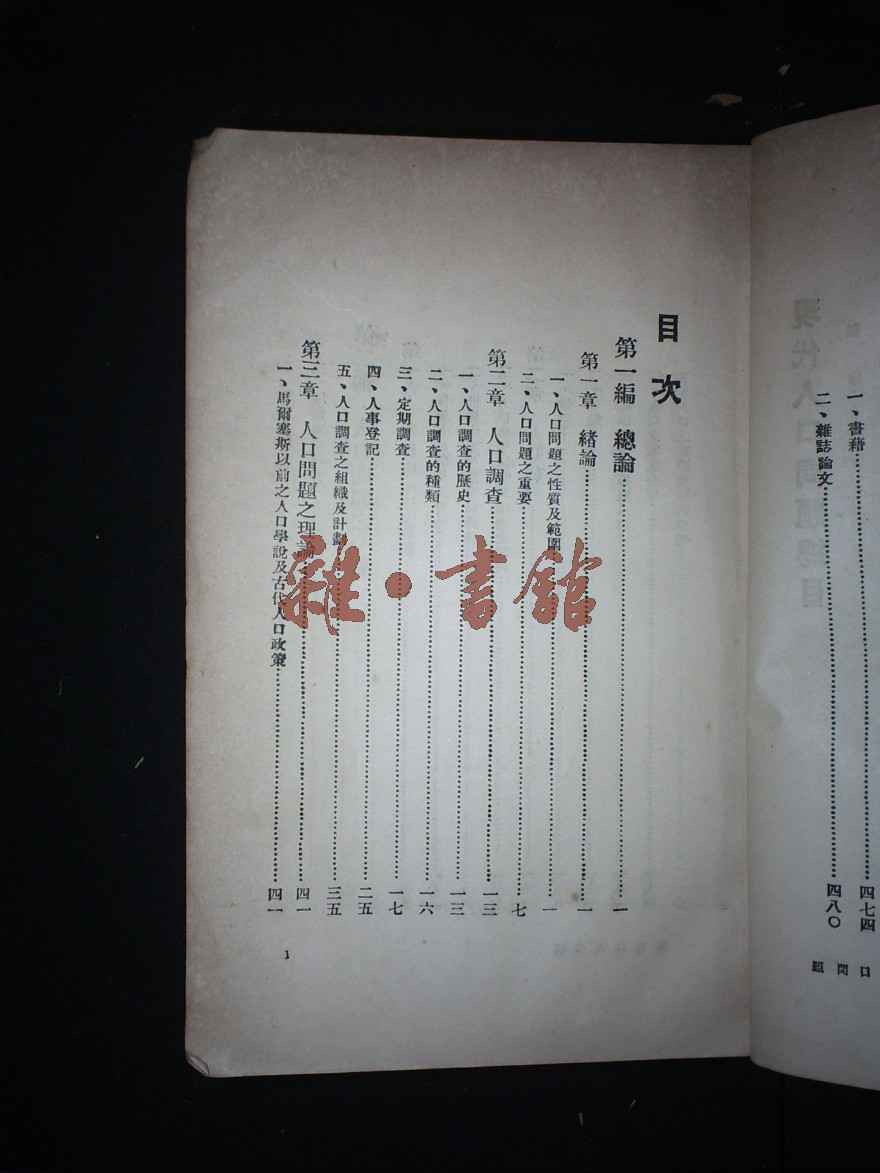 一、書籍……四七四
二、雜誌論文……四八〇
口
問
題
目次
第一編 總論……一
第一章 緒論……一
一、人口問題之性質及範圍……一
二、人口問題之重要……七
第二章 人口調查……一三
一、人口調查的歷史……一三
二、人口調查的種類……一六
三、定期調查……一七
四、人事登記……二五
五、人口調查之組織及計劃……三五
第三章 人口問題之理論……四一
一、馬爾塞斯以前之人口學說及古代人口政策……四一
1
雜·書館